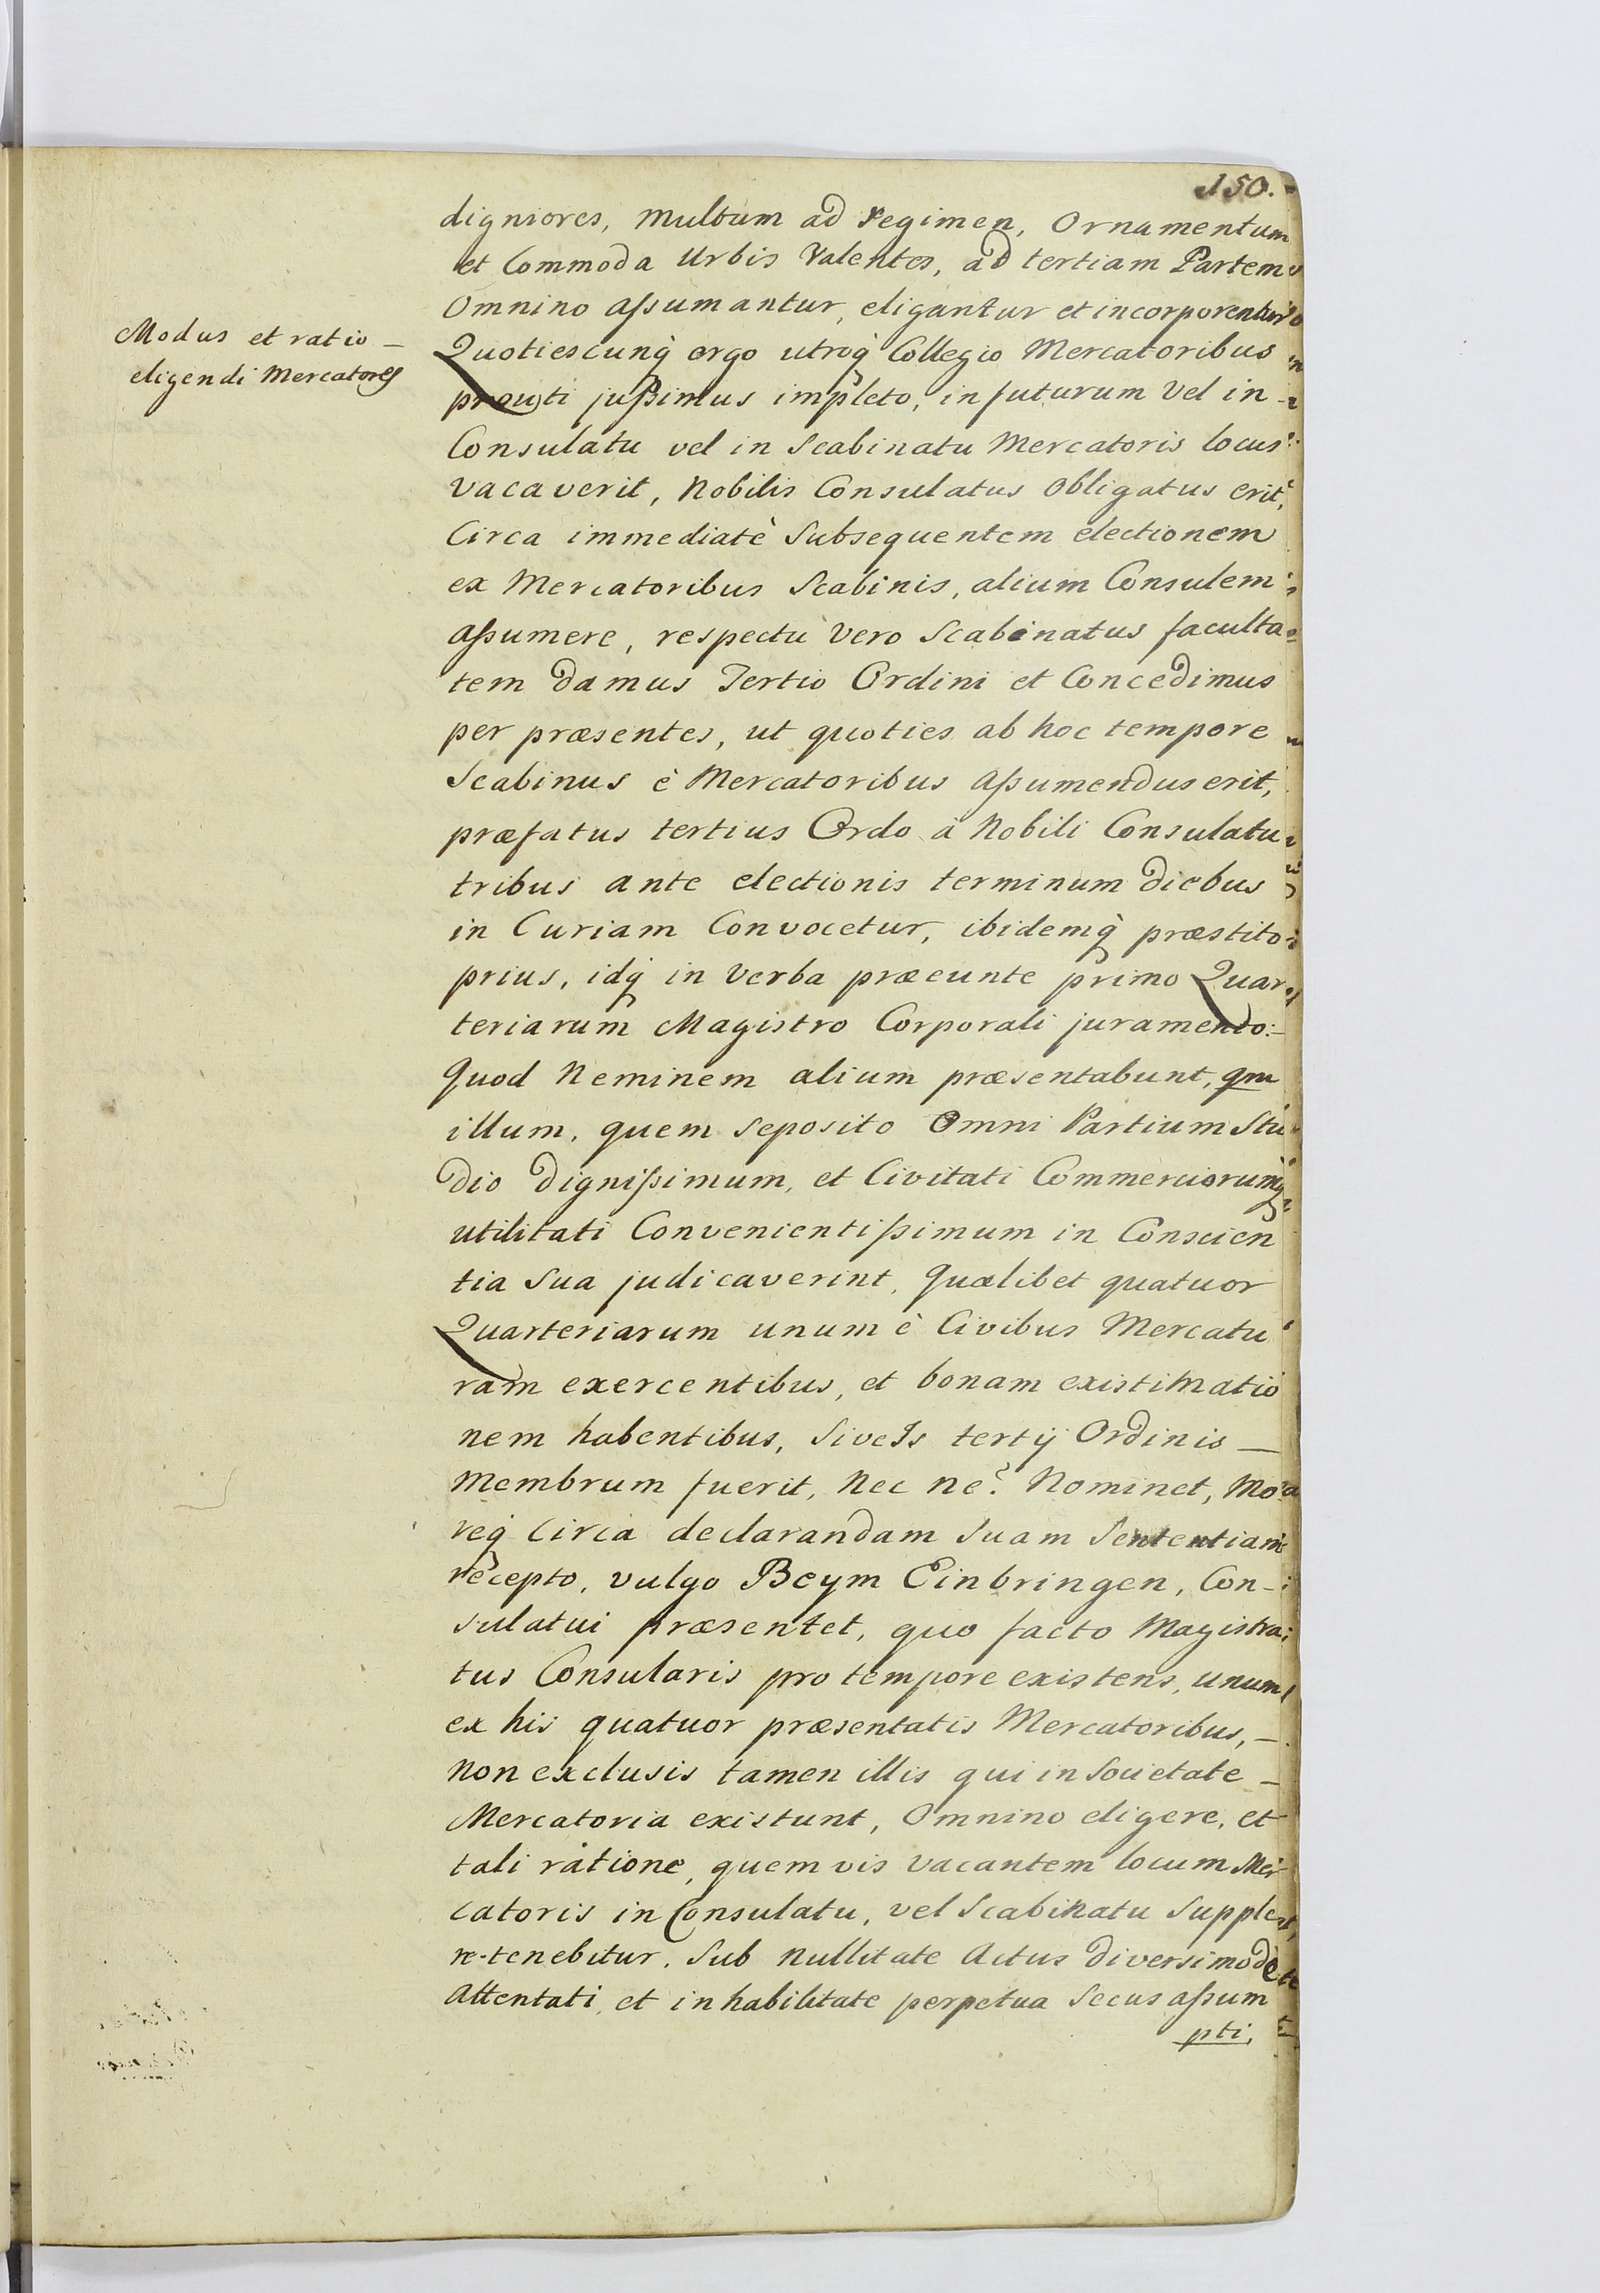 150.
digniores, multum ad regimen, Ornamentum
et Commoda Urbis Valentes, ad tertiam Partem
Omnino assumantur, eligantur et incorporentur
Modus et ratio –
eligendi Mercatores
Quotiescunq̀ ergo utroq̀ Collegio Mercatoribus
prouti jussimus impleto, in futurum vel in –
Consulatu vel in Scabinatu Mercatoris locus
vacaverit, Nobilis Consulatus obligatus erit,
Circa immediatè Subsequentem electionem
ex Mercatoribus Scabinis, alium Consulem
assumere, respectu vero Scabinatus faculta=
tem damus Tertio Ordini et Concedimus
per præsentes, ut quoties ab hoc tempore
Scabinus è Mercatoribus assumendus erit,
præfatus tertius Ordo à Nobili Consulatu
tribus ante electionis terminum diebus
in Curiam Convocetur, ibidemq̀ præstito
prius, idq̀ in verba præeunte primo Quar
teriarum Magistro Corporali juramento:–
Quod Neminem alium præsentabunt, qm
illum, quem seposito Omni Partium Stu
dio dignissimum, et Civitati Commerciorumq̀
utilitati Convenientissimum in Conscien
tia sua judicaverint, Quælibet quatuor
Quarteriarum unum è Civibus Mercatu
ram exercentibus, et bonam existimatio
nem habentibus, sive Is tertij Ordinis –
Membrum fuerit, Nec ne? Nominet, Mo
req̀ Circa declarandam Suam Sententiam
recepto, vulgo Beym Einbringen, Con–
sulatui præsentet, quo facto Magistra
tus Consularis pro tempore existens, unum
ex his quatuor præsentatis Mercatoribus, –
non exclusis tamen illis qui in Societate –
Mercatoria existunt, Omnino eligere, et
tali ratione, quemvis vacantem locum Mer
catoris in Consulatu, vel Scabinatu Supple
re-tenebitur. Sub nullitate Actus diversimodè
Attentati, et inhabilitate perpetua Secus assum
pti,